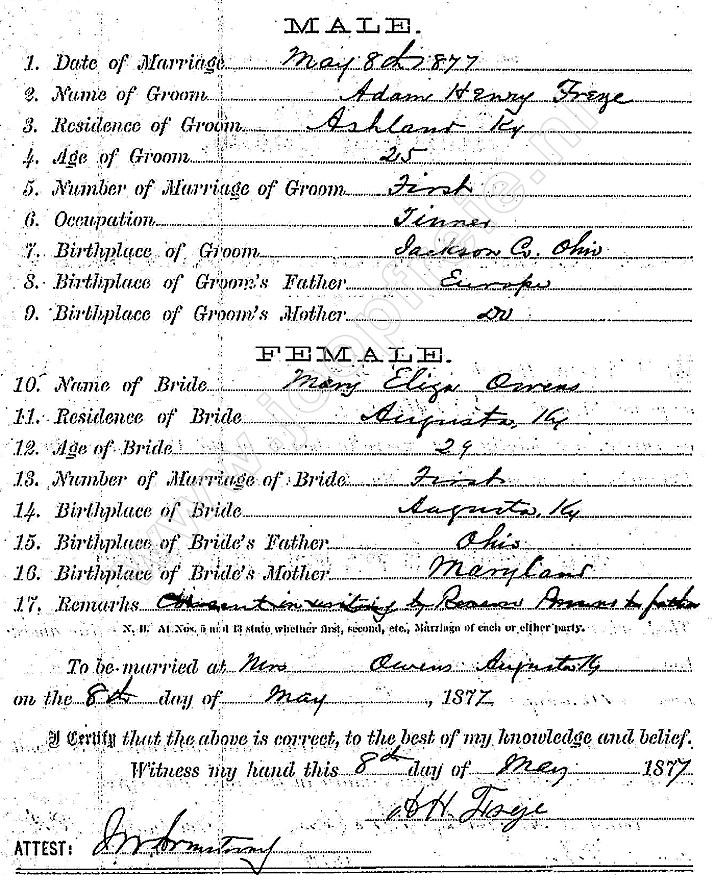 MALE.
1. Date of Marriage May 8th 1877
2. Name of Groom Adam Henry Freze
3. Residence of Groom Ashland Ky
4. Age of Groom 25
5. Number of Marriage of Groom First
6. Occupation Tinner
7. Birthplace of Groom Jackson Co. Ohio
8. Birthplace of Groom's Father Europe
9. Birthplace of Groom's Mother Do
FEMALE.
10. Name of Bride Mary Eliza Owens
11. Residence of Bride Augusta, Ky
12. Age of Bride 29
13. Number of Marriage of Bride First
14. Birthplace of Bride Augusta, Ky
15. Birthplace of Bride's Father Ohio
16. Birthplace of Bride's Mother Maryland
17. Remarks Consent in writing by
N. B. At Nos. 5 and 13 state whether first, second, etc., Marriage of each or either party.
To be married at Mrs Owens Augusta Ky
on the 8th day of May, 1877
I Certify that the above is correct, to the best of my knowledge and belief.
Witness my hand this 8th day of May 1877
A H Freze
ATTEST: J W Armstrong